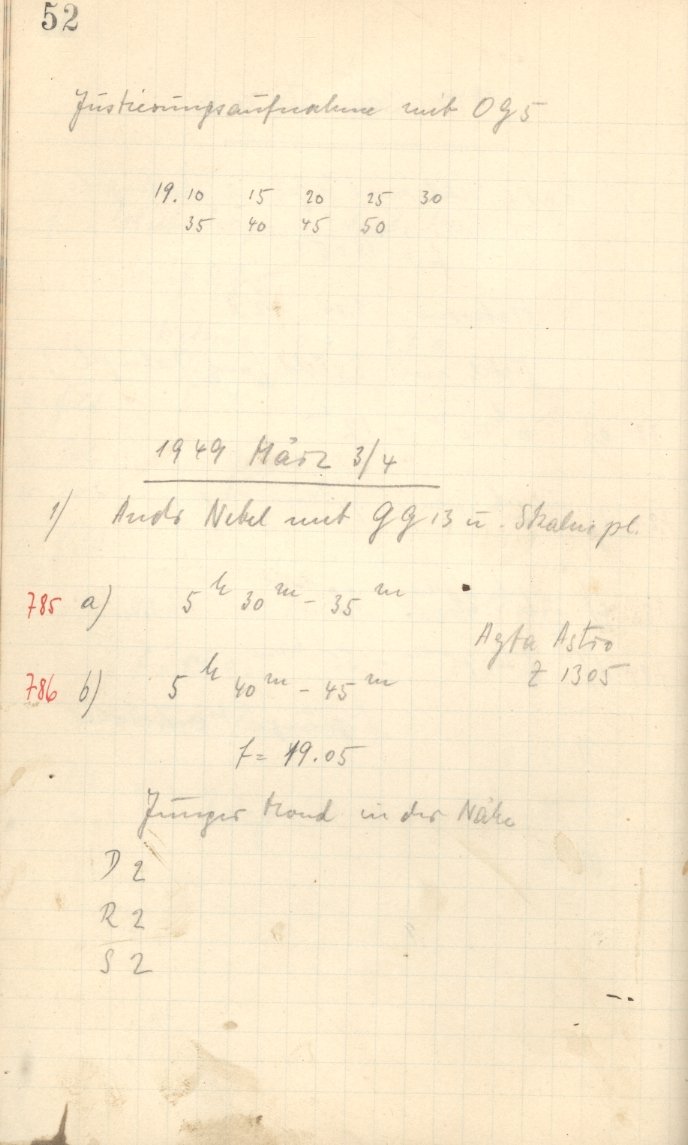 52
Justierungsaufnahme mit OG5
19.10 15 20 25 30
35 40 45 50
1949 März 3/4
1) Andr Nebel mit GG13 u. Skalenpl.
785 a) 5h 30m - 35m
Agfa Astro
Z 1305
786 b) 5h 40m - 45m
f= 19.05
Junger Mond in der Nähe
D 2
R 2
S 2